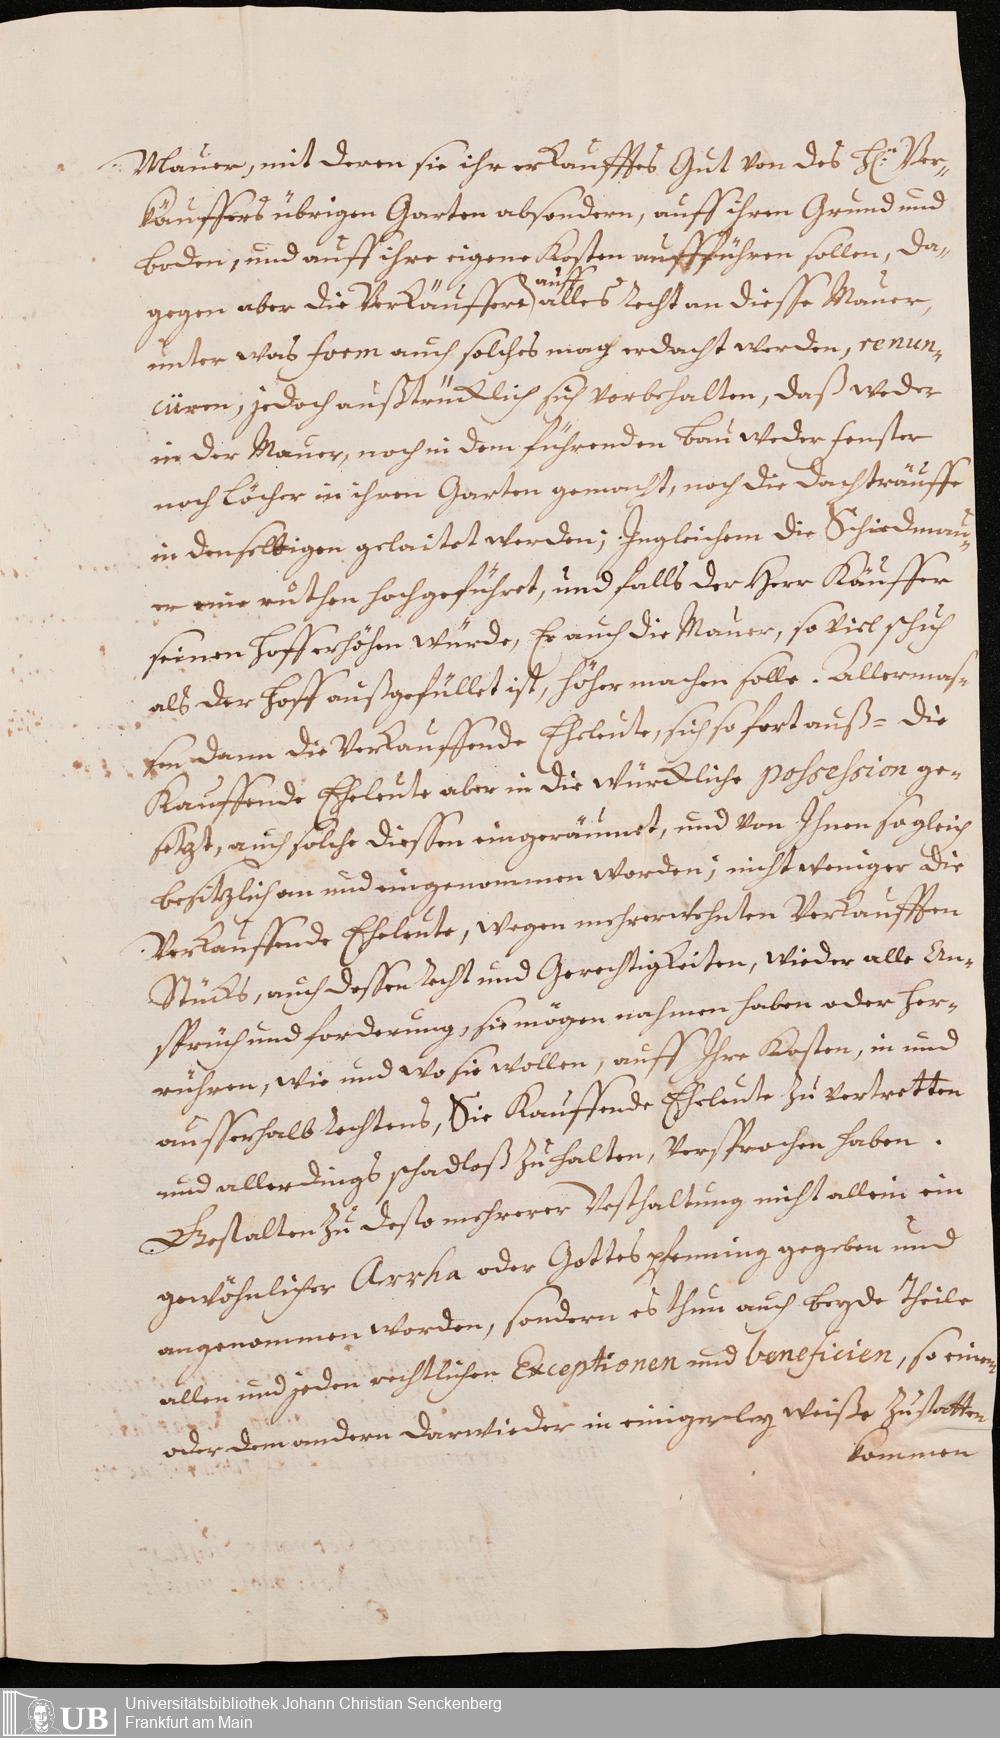 Mauer, mit deren sie ihr erkaufftes Gut von des H: Ver-
käuffers übrigen Garten absondern, auff ihren Grund und
boden, und auff ihre eigene Kosten auffführen sollen, da-
gegen aber die Verkäuffere auff alles Recht an diesse Mauer,
unter was form auch solches mag erdacht werden, renun-
cüren, jedoch außtrücklich sich vorbehalten, daß weder
in der Mauer, noch in dem führenden bau weder fenster
noch Löcher in ihren Garten gemacht, noch die dachträuffe
in denselbigen gelaitet werden; Ingleichem die Schiedmau-
er eine ruthen hochgeführet, und falls der Herr Käuffer
seinen Hoff erhöhen würde, Er auch die Mauer, so viel schuh
als der Hoff außgefüllet ist, höher machen solle. Allermas-
sen dann die Verkauffende Eheleute, sich so fort auß- die
Kauffende Eheleute aber in die würckliche possession ge-
setzt, auch solche diessen eingeräumet, und von Ihnen sogleich
besitzlich an und eingenommen worden; nicht weniger die
Verkauffende Eheleute, wegen mehrerwehnten Verkaufften
Stücks, auch dessen Recht und Gerechtigkeiten, wieder alle An-
sprüch und forderung, sie mögen nahmen haben oder her-
rühren, wie und wo sie wollen, auff Ihre Kosten, in und
ausserhalb Rechtens, Sie Kauffende Eheleute zu vertretten
und allerdings schadloß zu halten, versprochen haben.
Gestalten zu desto mehrerer Vesthaltung nicht allein ein
gewöhnlicher Arrha oder Gottespfenning gegeben und
angenommen worden, sondern es thun auch beyde Theile
allen und jeden rechtlichen Exceptionen und beneficien, so einem
oder dem andern darwieder in einigerley weiße zustatten
kommen
UB Universitätsbibliothek Johann Christian Senckenberg
Frankfurt am Main